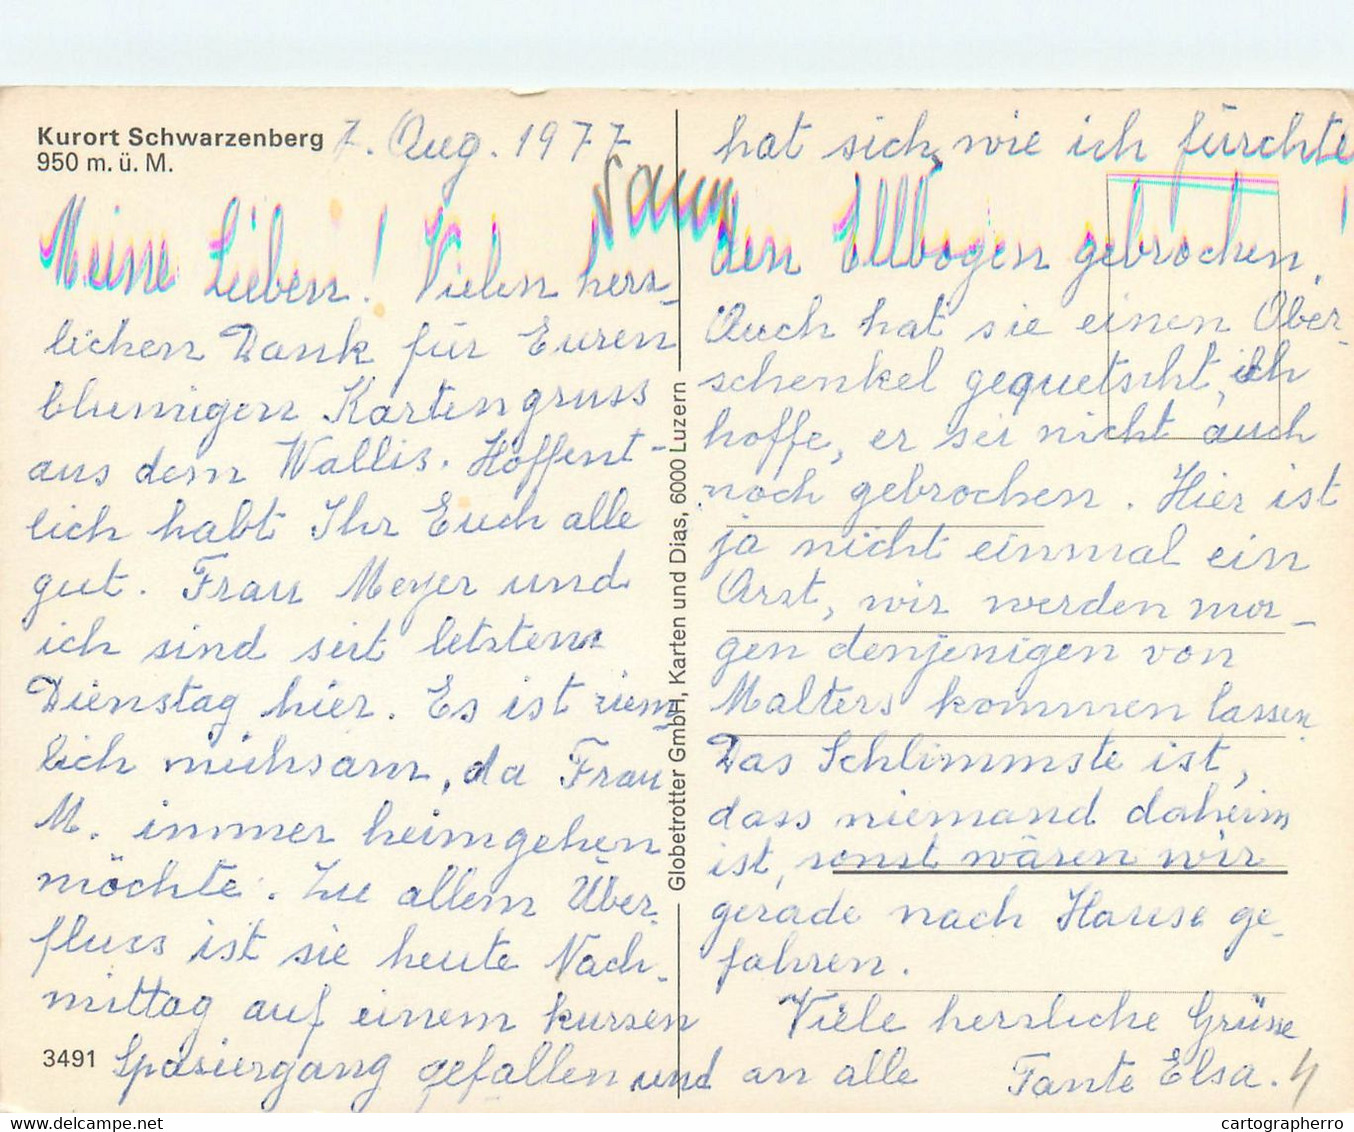 Kurort Schwarzenberg
950 m. ü. M.
7. Aug. 1977
Meine Lieben! Vielen herz-
lichen Dank für Euren
blumigen Kartengruss
aus dem Wallis. Hoffent-
lich habt Ihr Euch alle
gut. Frau Meyer und
ich sind seit letztem
Dienstag hier. Es ist ziem-
lich mühsam, da Frau
M. immer heimgehen
möchte. Zu allem Über-
fluss ist sie heute Nach-
mittag auf einem kurzen
Spaziergang gefallen und
3491
Globetrotter GmbH, Karten und Dias, 6000 Luzern
hat sich, wie ich fürchte
den Ellbogen gebrochen!
Auch hat sie einen Ober-
schenkel gequetscht, ich
hoffe, er sei nicht auch
noch gebrochen. Hier ist
ja nicht einmal ein
Arzt, wir werden mor-
gen denjenigen von
Malters kommen lassen
Das Schlimmste ist,
dass niemand daheim
ist, sonst wären wir
gerade nach Hause ge-
fahren.
Viele herzliche Grüsse
an alle Tante Elsa.
delcampe.net
cartographerro